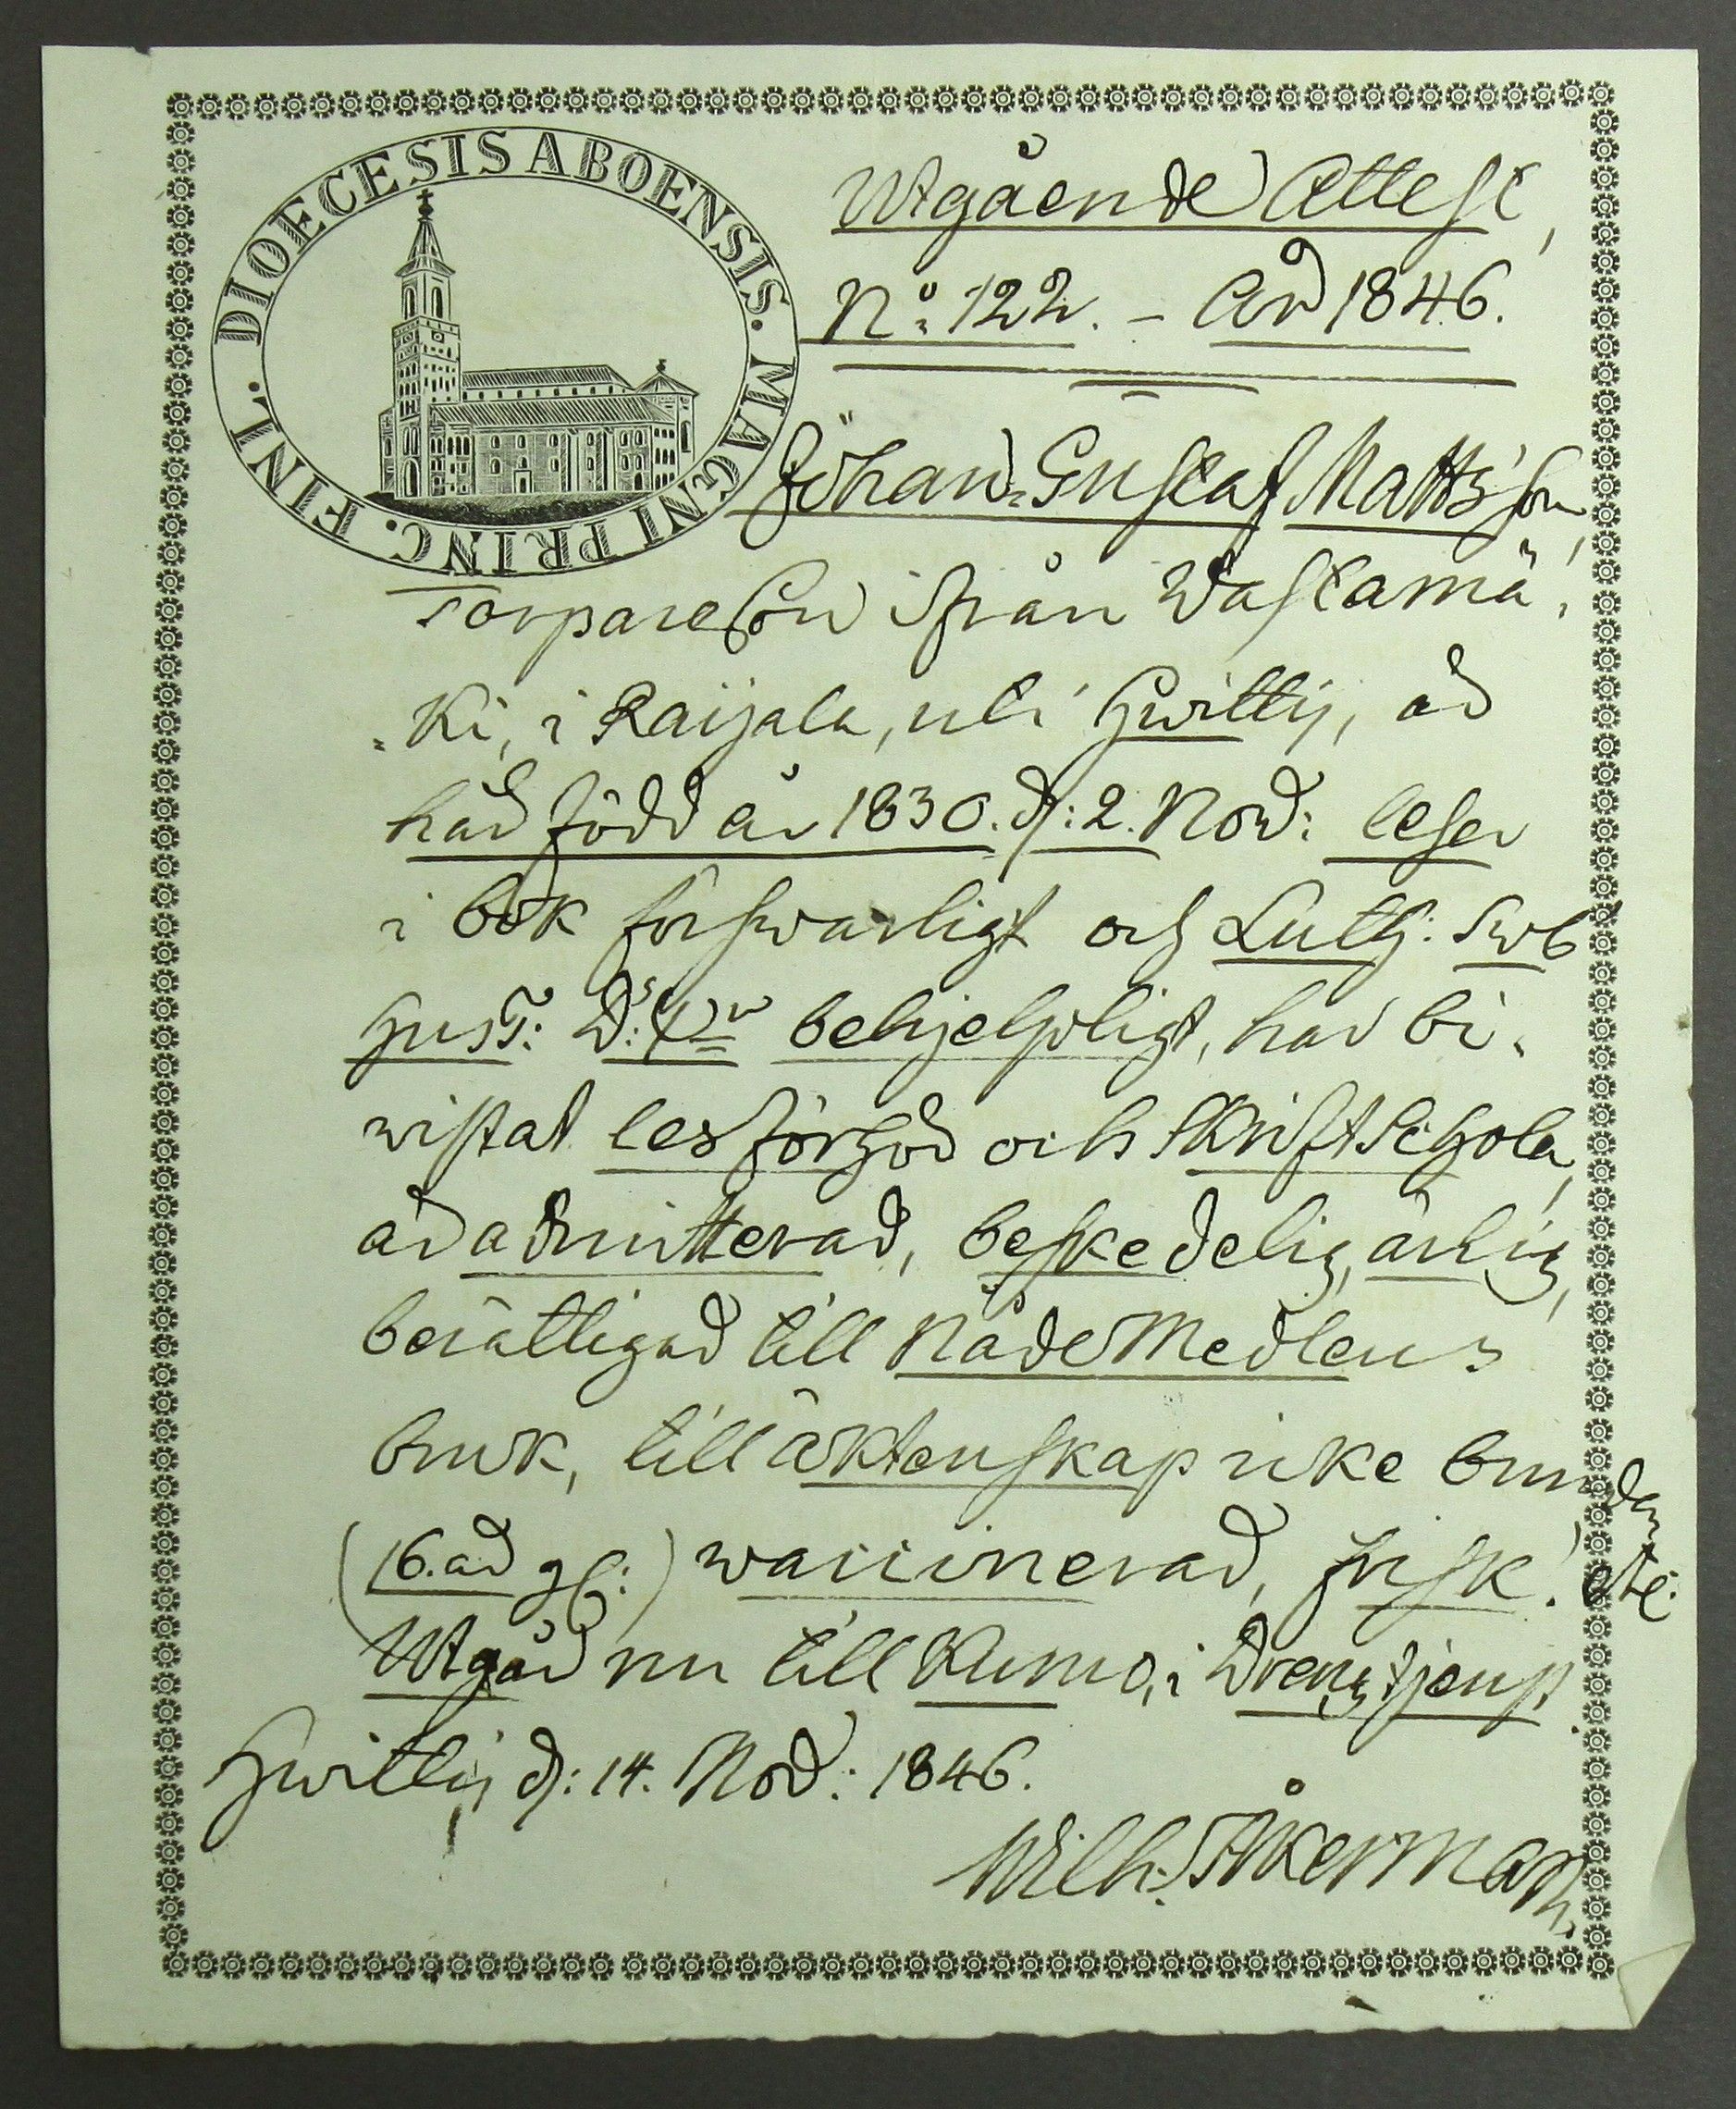 DIOECESIS ABOENSIS. MAGNI PRINC. FINL.
Utgående Attest,
N:o 122. – År 1846.
Johan Gustaf Mattsson,
torpareson ifrån Wastamä-
ki, i Raijala, uti Hwittis, är
här född år 1830. d: 2. Nov: läser
i bok förswarligt och Luth: Swb
Hust: D:s behjelpligt, har bi-
wistat läsförhör och Skriftschola,
är admitterad, beskedelig, ärlig,
berättigad till Nådemedlens
bruk, till äktenskap icke bunden
(16. år gl:) waccinerad, frisk! etc:
Utgår nu till Kumo, i Drengtjenst.
Hwittis d: 14. Nov: 1846.
Wilh: Åkerman.